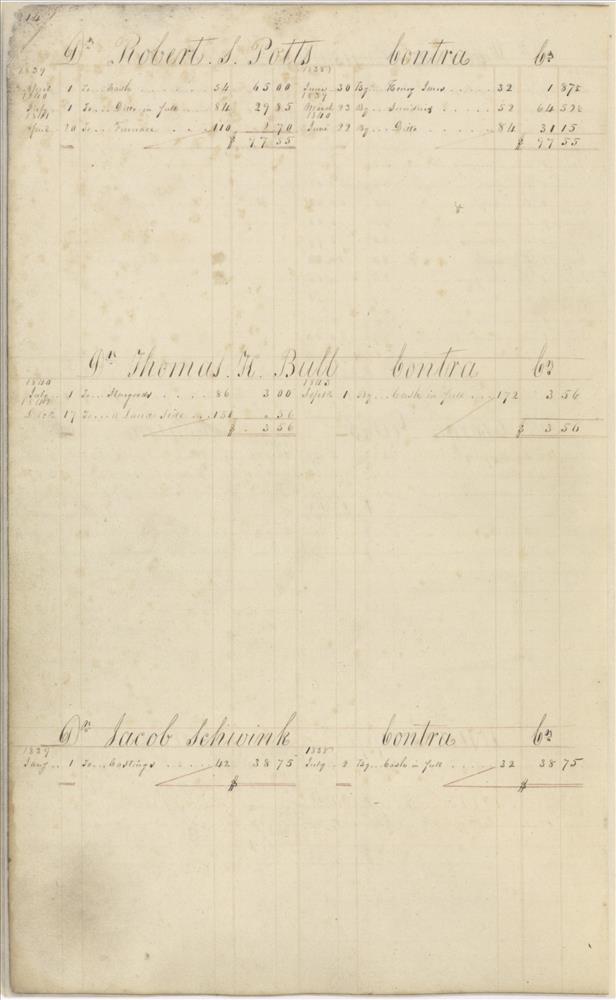 14
Dr. Robert. S. Potts Contra Cr.
1839 1838
April 1 To .. Cash 54 65 00 June 30 By .. Henry 32 1 875
1840 1839
July 1 To .. Ditto in full 84 29 85 March 23 By .. Sundries 52 64 525
1841 1840
April 20 To .. Furnace 110 2 70 June 22 By .. Ditto 84 31 15
$ 97 55 $ 97 55
Dr. Thomas. K. Bull Contra Cr.
1840 1843
July 1 To .. 86 3 00 Septr 1 By .. Cash in full 172 3 56
Decr 17 To .. a Land Side 151 56
$ 3 56 $ 3 56
Dr. Jacob Schwink Contra Cr.
1839 1838
Jany 1 To .. Castings 42 38 75 July 2 By .. Cash in full 32 38 75
$ $